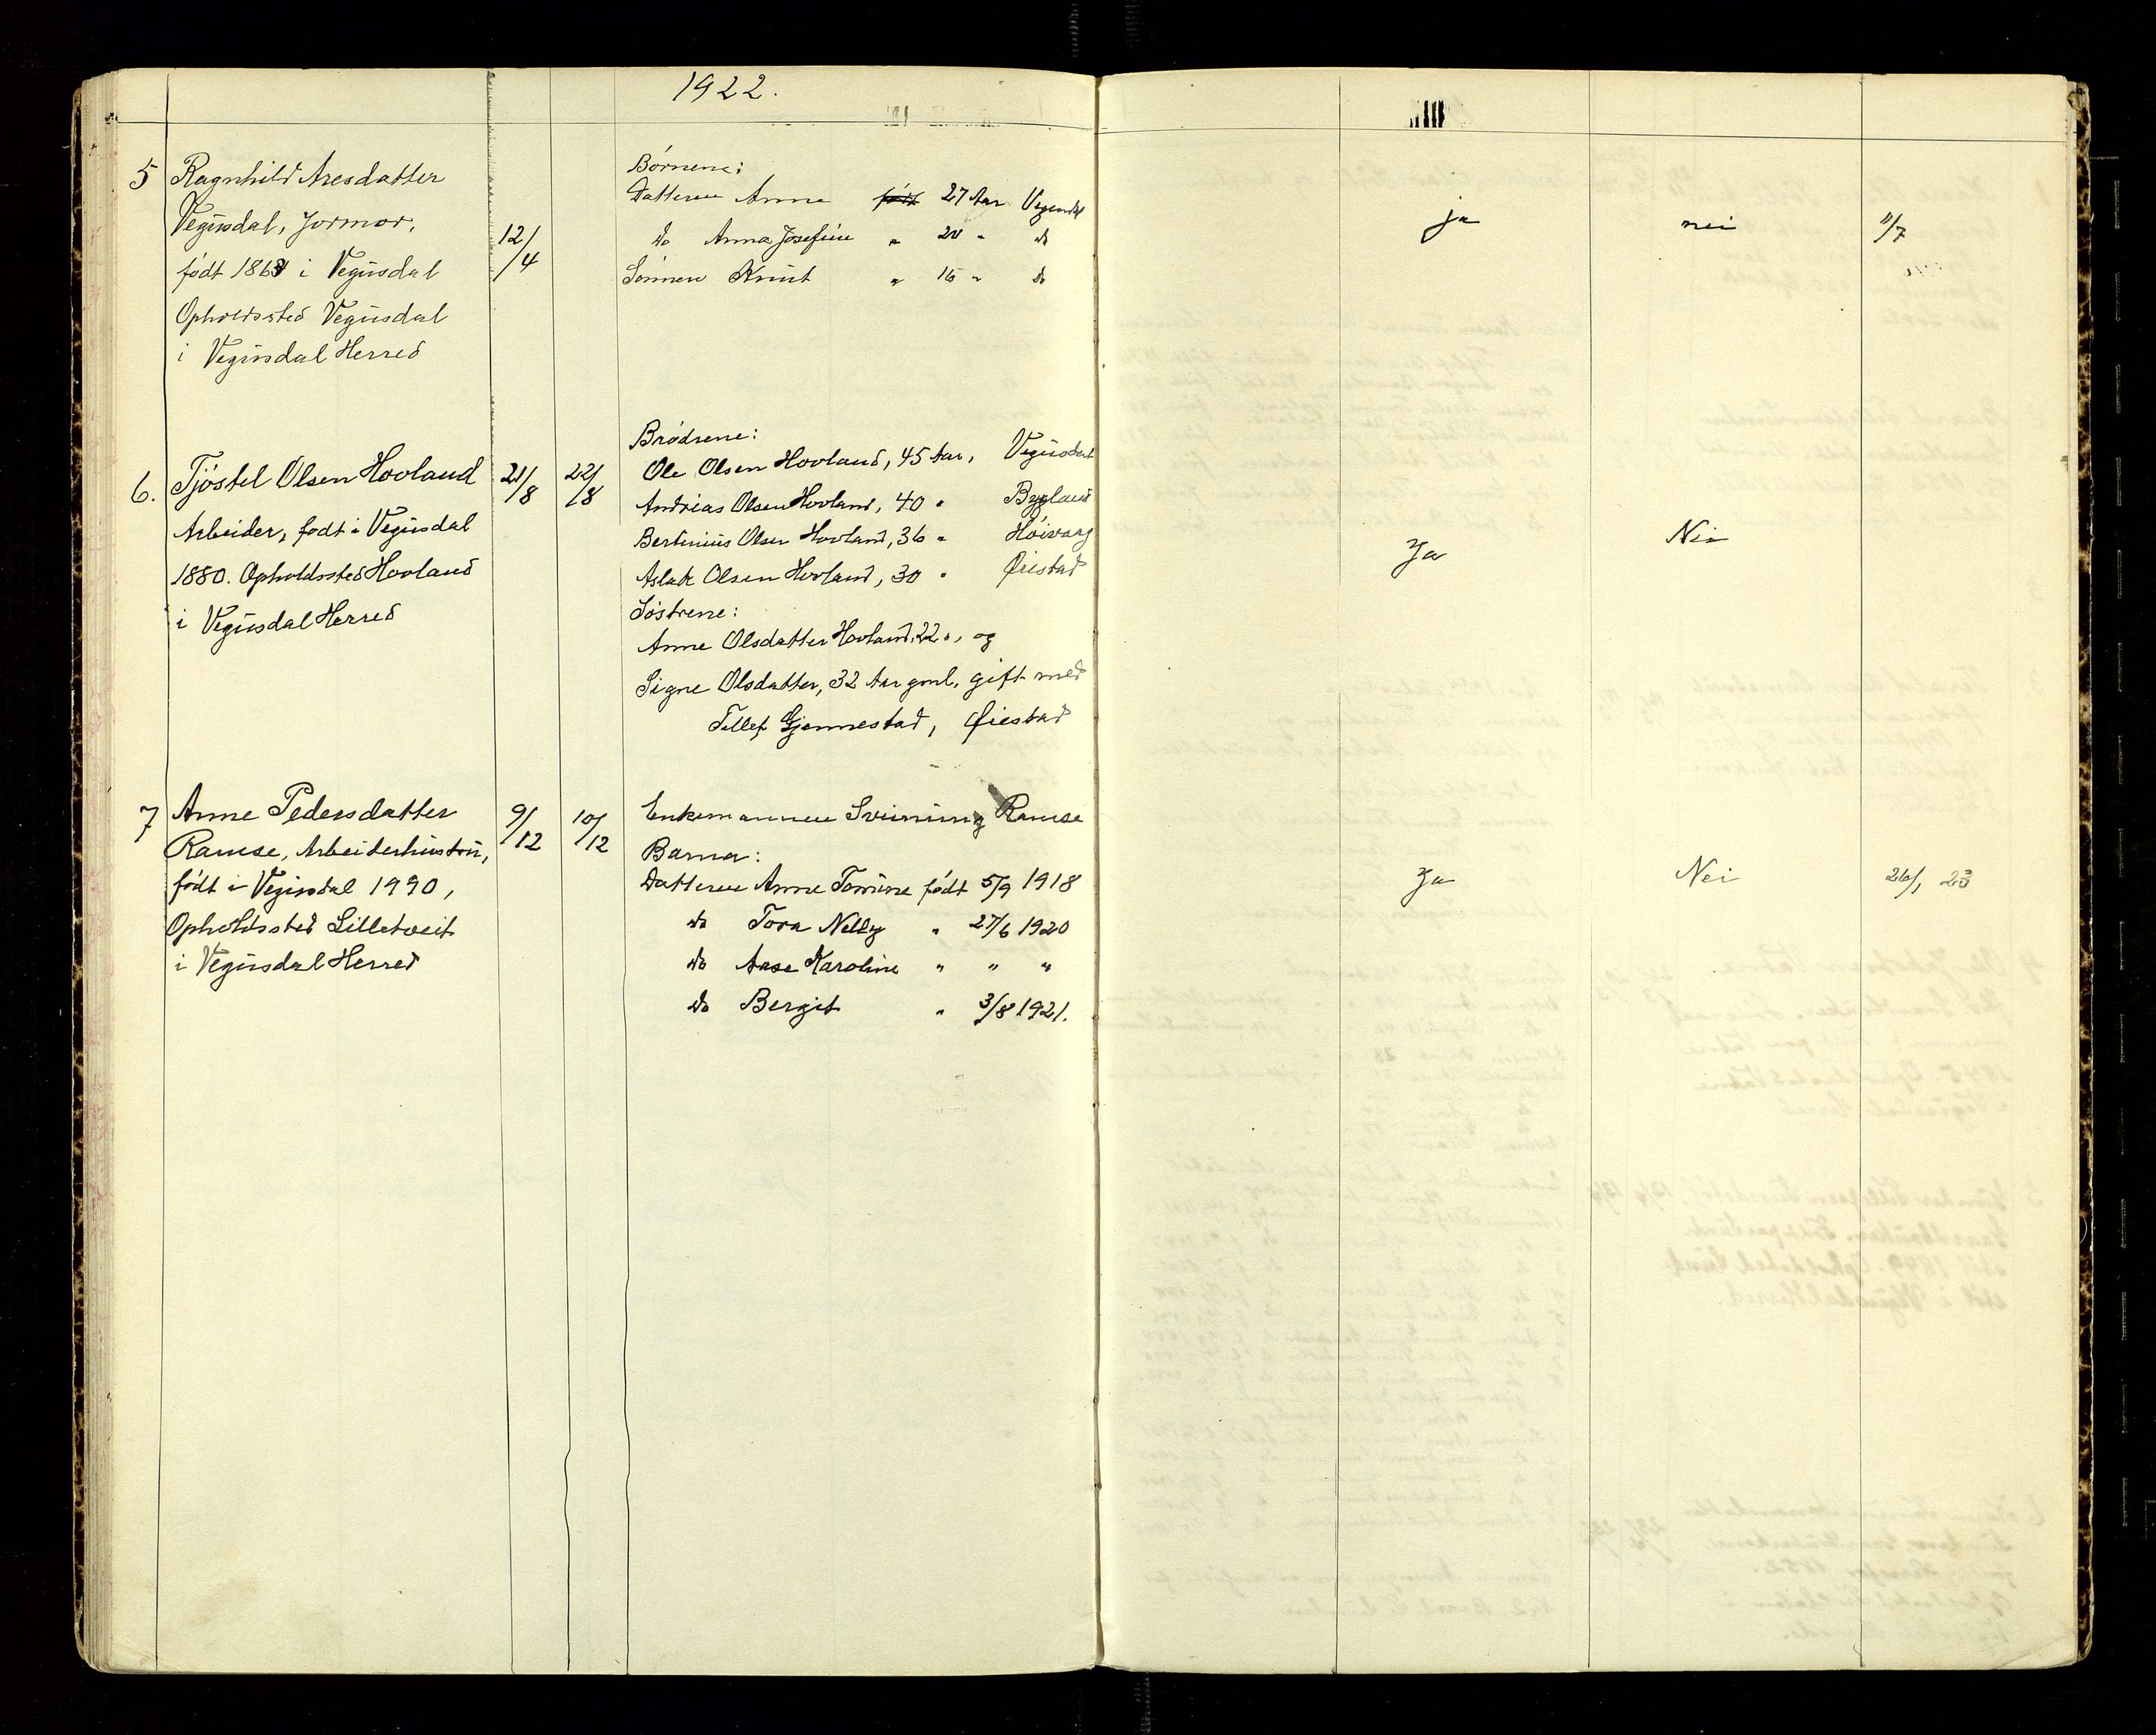 1922.
5 Ragnhild Aresdatter
Vegusdal, Jormor,
født 1867 i Vegusdal
Opholdssted Vegusdal
i Vegusdal Herred
12/4
Børnene:
Datteren Anna født 27 Aar Vegusdal
do Anna Josefine " 20 " do
Sønnen Knut " 16 " do
ja
nei
11/7
6. Tjöstel Olsen Hovland
Arbeider, født i Vegusdal
1880. Opholdssted Hovland
i Vegusdal Herred
21/8
22/8
Brødrene:
Ole Olsen Hovland, 45 Aar, Vegusdal
Andreas Olsen Hovland, 40 " Bygland
Bertinius Olsen Hovland, 36 " Høivaag
Aslak Olsen Hovland, 30 " Øiestad
Søstrene:
Anne Olsdatter Hovland, 22 ", og
Signe Olsdatter, 32 Aar gml, gift med
Tellef Gjennestad, Øiestad
Ja
Nei
7 Anne Pedersdatter
Ramse, Arbeiderhustru,
født i Vegusdal 1990,
Opholdssted Lilletveit
i Vegusdal Herred
9/12
10/12
Enkemannen Sveinung Ramse
Barna:
Datteren Anne Tomine født 5/9 1918
do Tora Nelly " 27/6 1920
do Aase Karoline " " "
do Bergit " 3/8 1921.
Ja
Nei
26/1 23